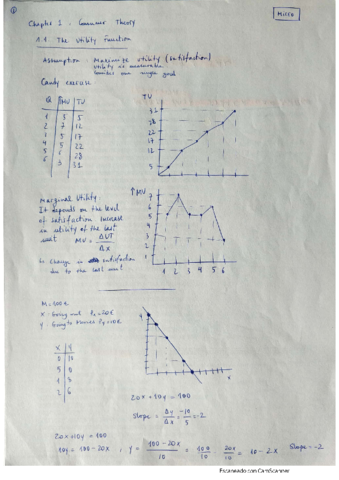 Micro
Chapter 1 : Consumer Theory
1.1. The Utility Function
Assumption : Maximize utility (satisfaction)
Utility is measurable
Consider one single good
Candy exercise
Q MU TU
1 5 5
2 7 12
3 5 17
4 5 22
5 6 28
6 3 31
TU
28
22
17
12
5
Marginal Utility
It depends on the level
of satisfaction increase
in utility of the last
unit MU = ΔUT / Δx
↳ Change in satisfaction
due to the last unit
↑MU
7
6
5
4
3
2
1
1 2 3 4 5 6
X : Going out Px=20€
Y : Going to Movies Py=10€
X Y
0 10
2 6
y
x
20x + 10y = 100
Slope = Δy/Δx = -10/5 = -2
20x + 10y = 100
10y = 100 - 20x ; y = (100 - 20x)/10 = 100/10 - 20x/10 = 10 - 2x Slope = -2
Escaneado con CamScanner